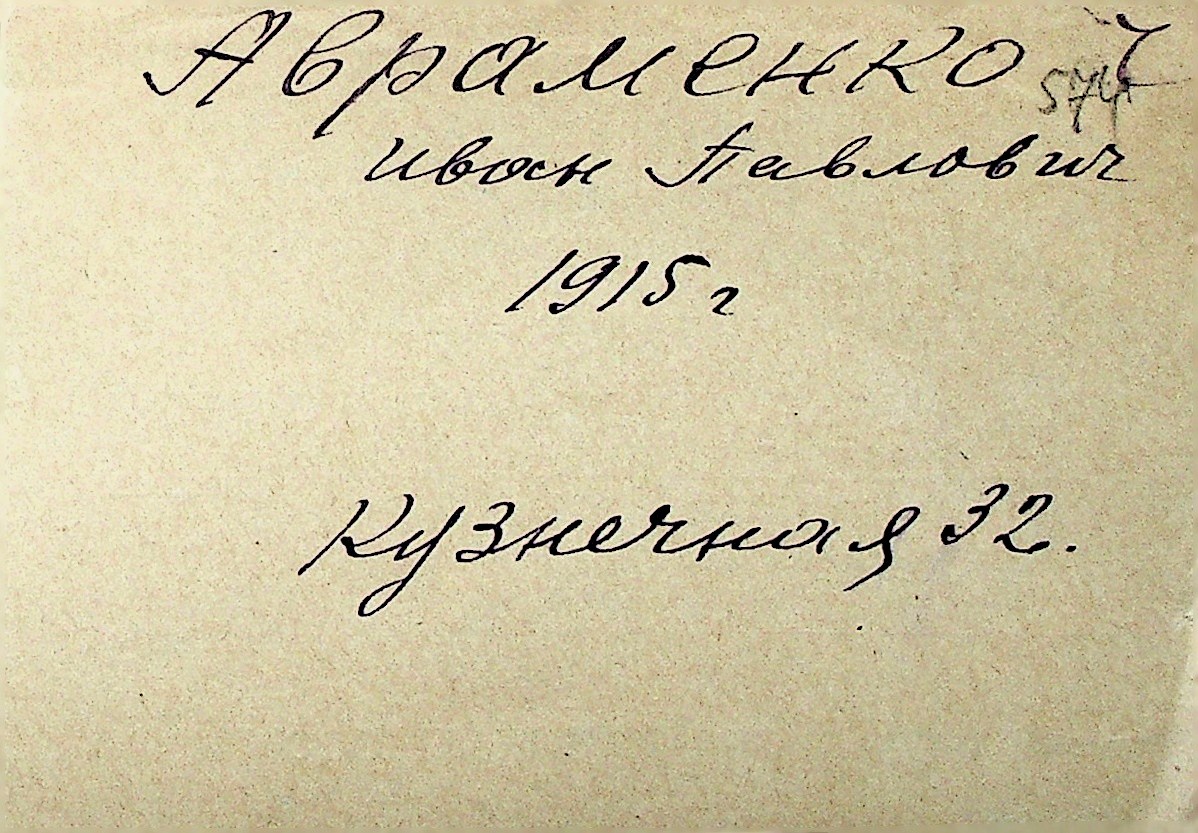 Авраменко
Иван Павлович
1915 г
Кузнечная 32.